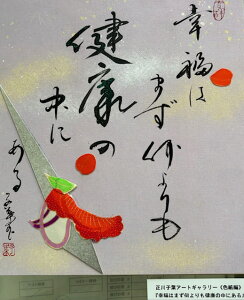 幸福は
まず何よりも
健康の
中に
ある
正川子葉アートギャラリー《色紙編》
『幸福はまず何よりも健康の中にある』